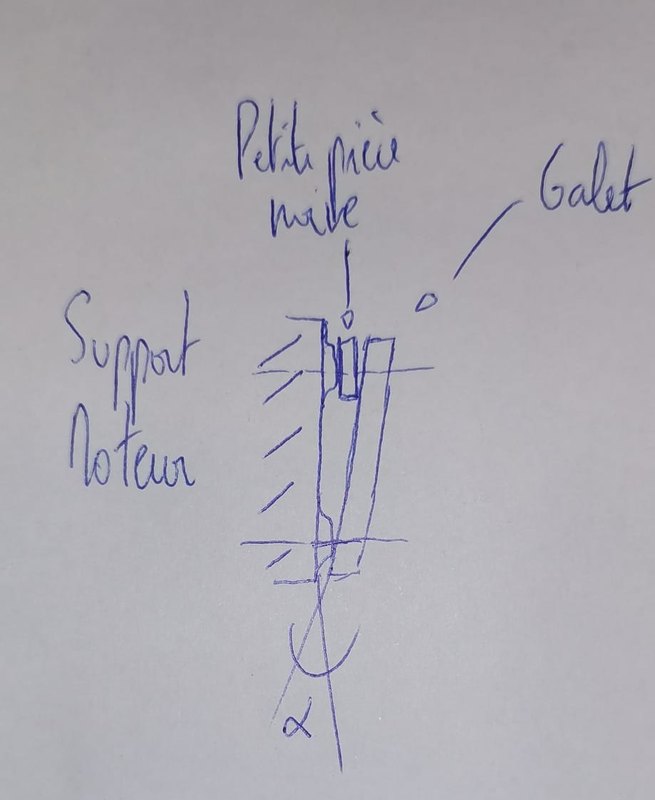 Petite pièce
noire
Galet
Support
Moteur
α